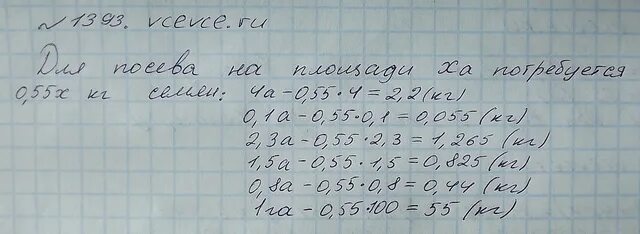 №1393. vcevce.ru
Для посева на площади Xа потребуется
0,55x кг семян: 4а – 0,55·4 = 2,2 (кг)
0,1а – 0,55·0,1 = 0,055 (кг)
2,3а – 0,55·2,3 = 1,265 (кг)
1,5а – 0,55·1,5 = 0,825 (кг)
0,8а – 0,55·0,8 = 0,44 (кг)
1га – 0,55·100 = 55 (кг)